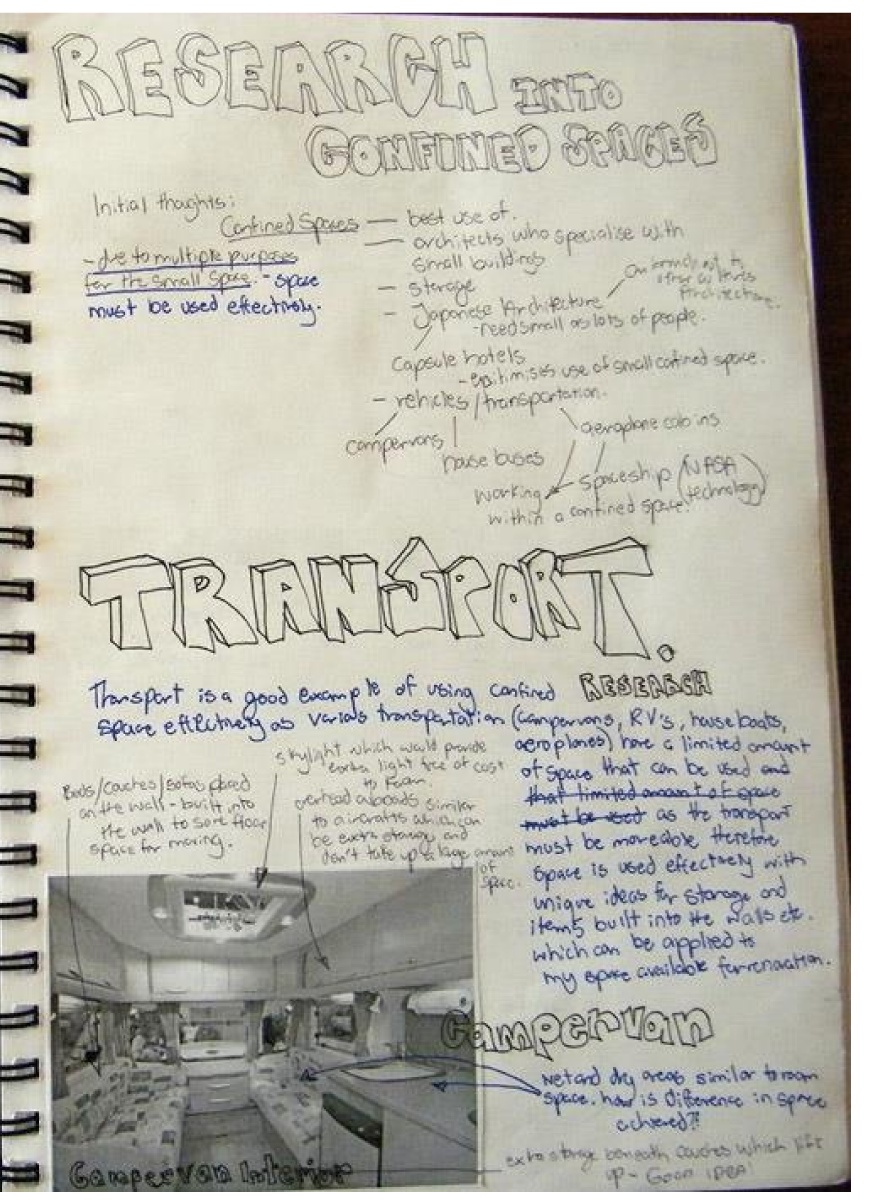 RESEARCH INTO
CONFINED SPACES
Initial thoughts:
Confined Spaces — best use of.
- due to multiple purposes
for the small space. - space
must be used effectively.
— architects who specialise with
small buildings
- storage
- Japanese Architecture
- need small as lots of people.
Architecture.
capsule hotels
- use of small confined space.
- vehicles/transportation.
campervans
house buses
aeroplane cabins
spaceship (NASA
technology)
working
within a confined space.
TRANSPORT.
RESEARCH
Transport is a good example of using confined
space effectively as various transportation (campervans, RV's, houseboats,
aeroplanes) have a limited amount
of space that can be used and
that limited amount of space
must be used as the transport
must be moveable therefore
space is used effectively with
unique ideas for storage and
items built into the walls etc.
which can be applied to
my space available for renovation.
skylight which would provide
extra light free of cost
to room.
Beds/couches/sofas placed
on the wall - built into
the wall to save floor
space for moving.
overhead similar
to aircrafts which can
be extra storage and
don't take up a large amount
of
space.
Campervan
Wet and dry areas similar to room
space. how is difference in space
achieved?!
extra storage beneath couches which lift
up - GOOD IDEA!
Campervan Interior